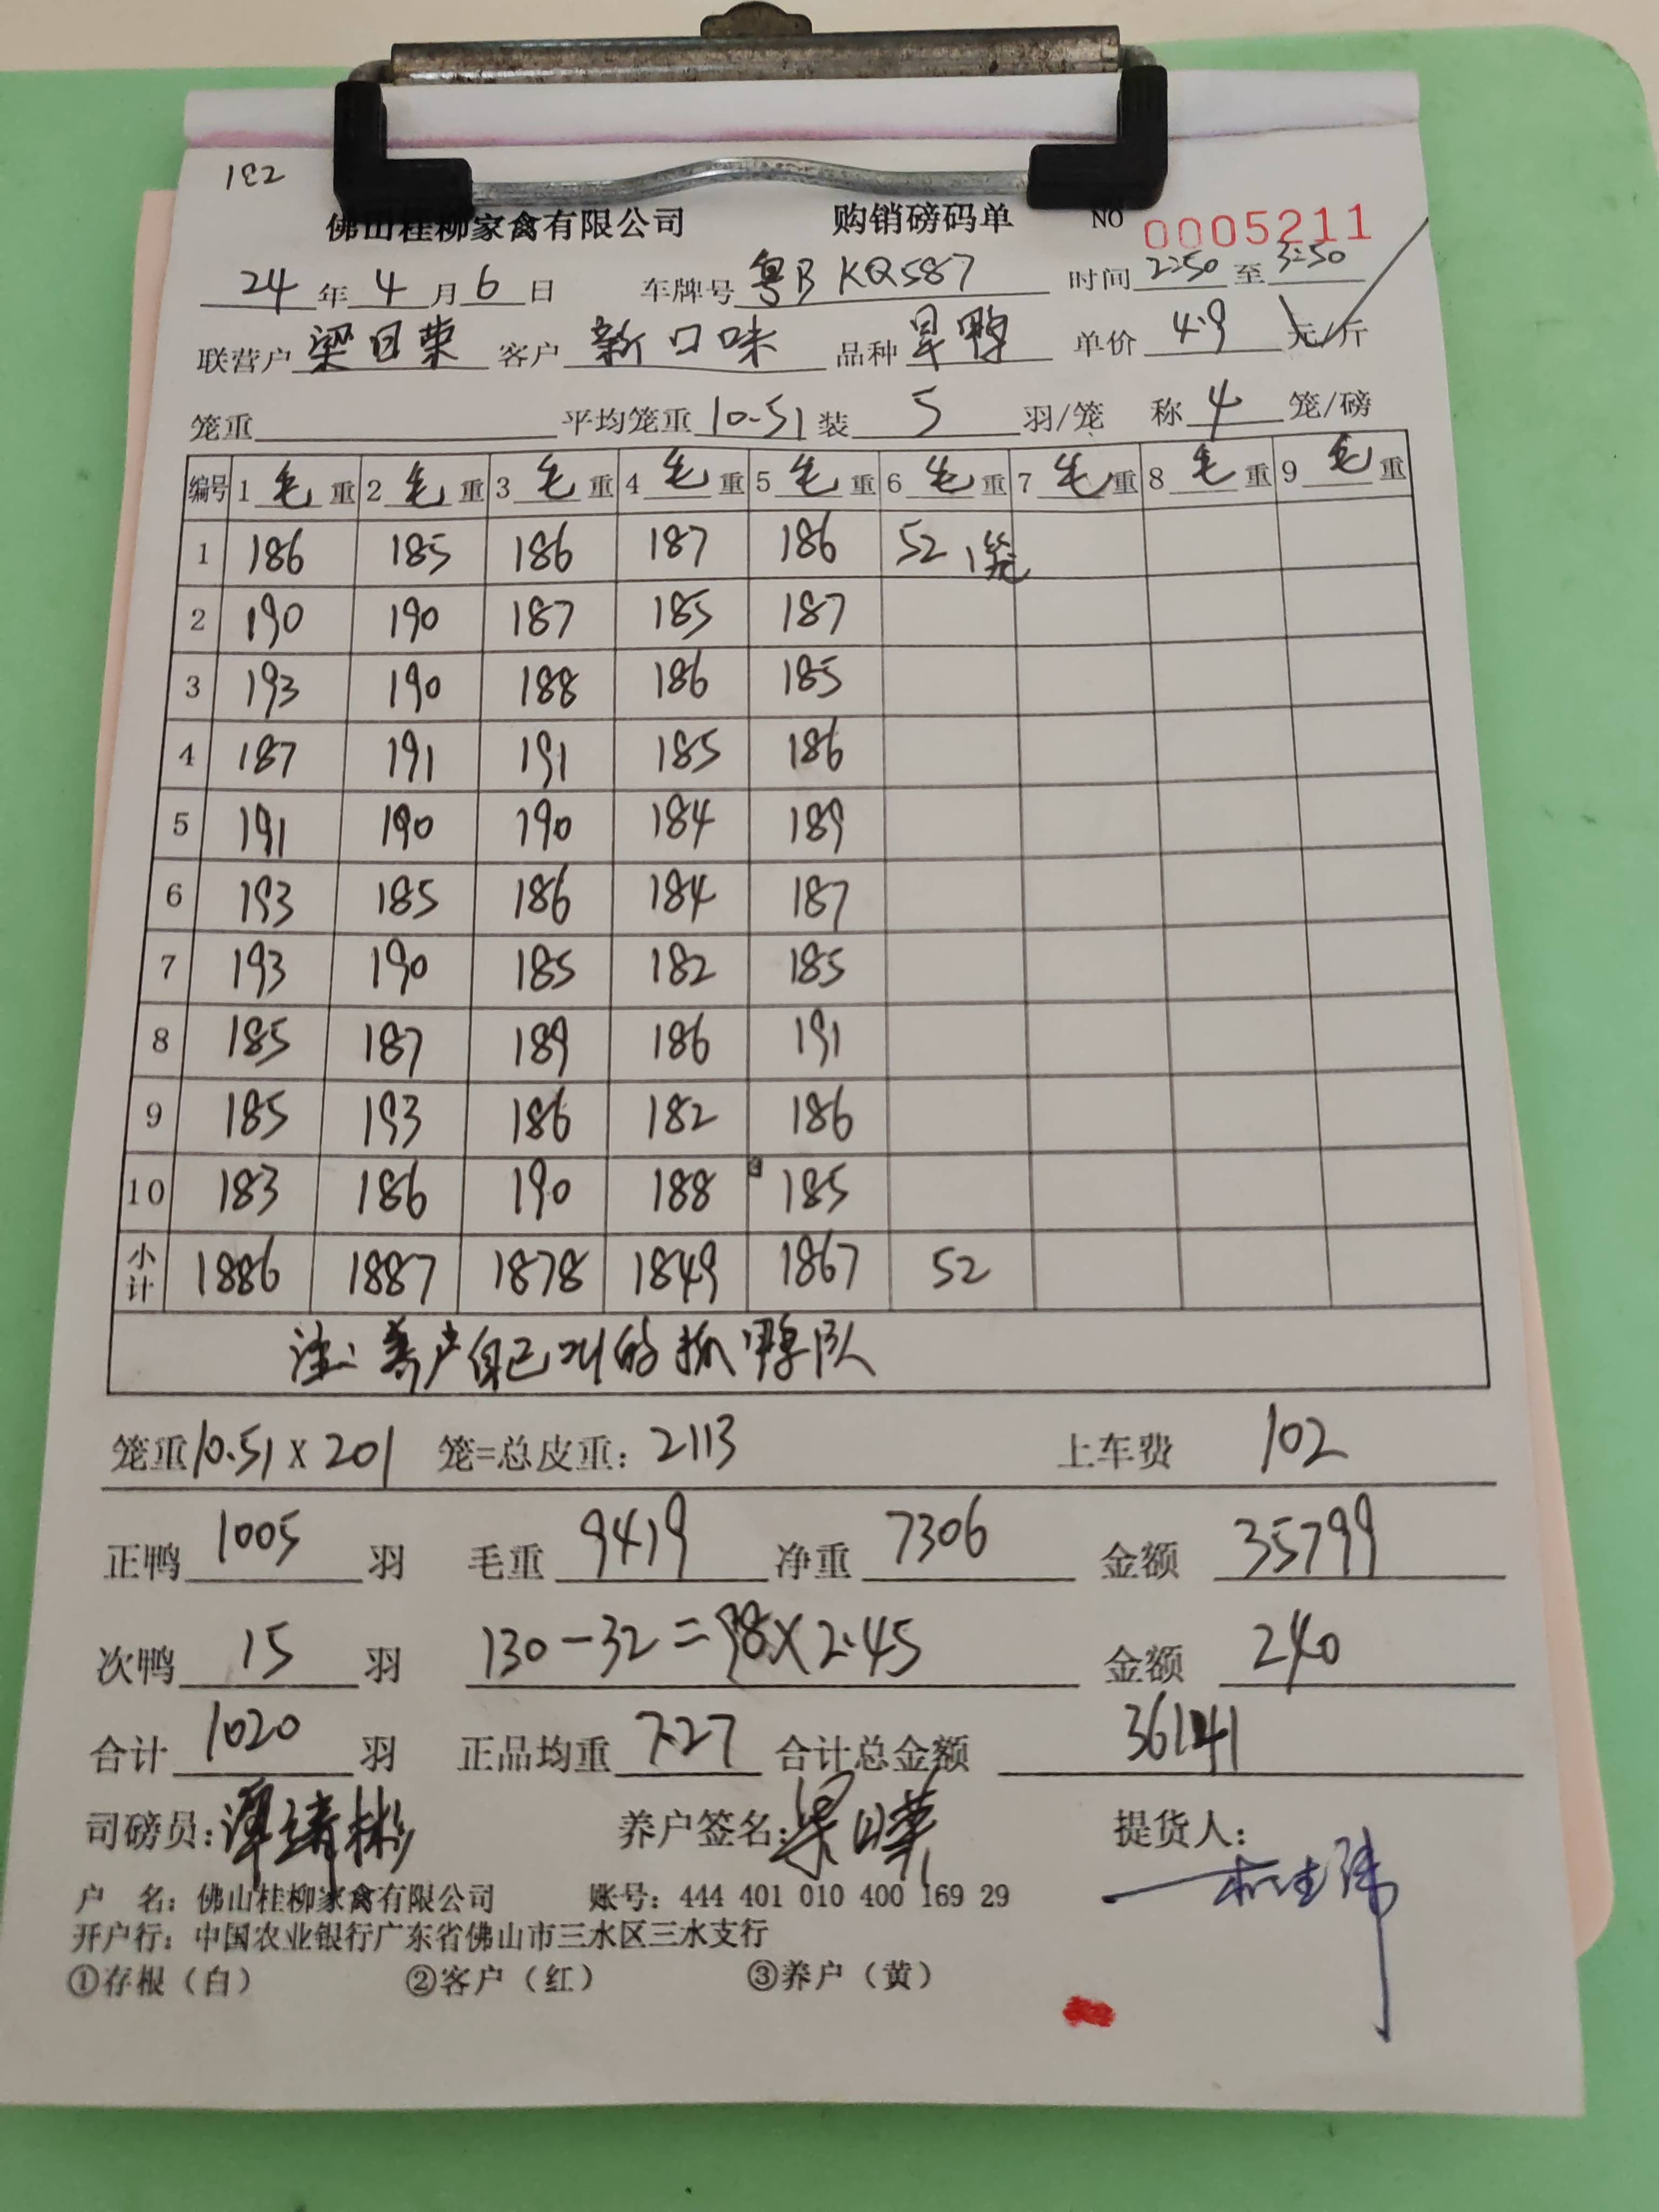 132
佛山桂柳家禽有限公司 购销磅码单 NO 0005211
24年4月6日 车牌号 粤B KQ587 时间 2:50 至 3:50
联营户 梁日荣 客户 新口味 品种 旱鸭 单价 4.9 元/斤
笼重 平均笼重 10.51 装 5 羽/笼 称 4 笼/磅
编号 1 毛 重 2 毛 重 3 毛 重 4 毛 重 5 毛 重 6 毛 重 7 毛 重 8 毛 重 9 毛 重
1 186 185 186 187 186 52 1笼
2 190 190 187 185 187
3 193 190 188 186 185
4 187 191 191 185 186
5 191 190 190 184 189
6 193 185 186 184 187
7 193 190 185 182 185
8 185 187 189 186 191
9 185 193 186 182 186
10 183 186 190 188 185
小计 1886 1887 1878 1849 1867 52
注: 养户自己叫的抓鸭队
笼重 10.51 x 201 笼=总皮重: 2113 上车费 102
正鸭 1005 羽 毛重 9419 净重 7306 金额 35799
次鸭 15 羽 130-32=98×2.45 金额 240
合计 1020 羽 正品均重 7.27 合计总金额 36141
司磅员: 养户签名: 提货人:
户 名: 佛山桂柳家禽有限公司 账号: 444 401 010 400 169 29
开户行: 中国农业银行广东省佛山市三水区三水支行
①存根（白） ②客户（红） ③养户（黄）